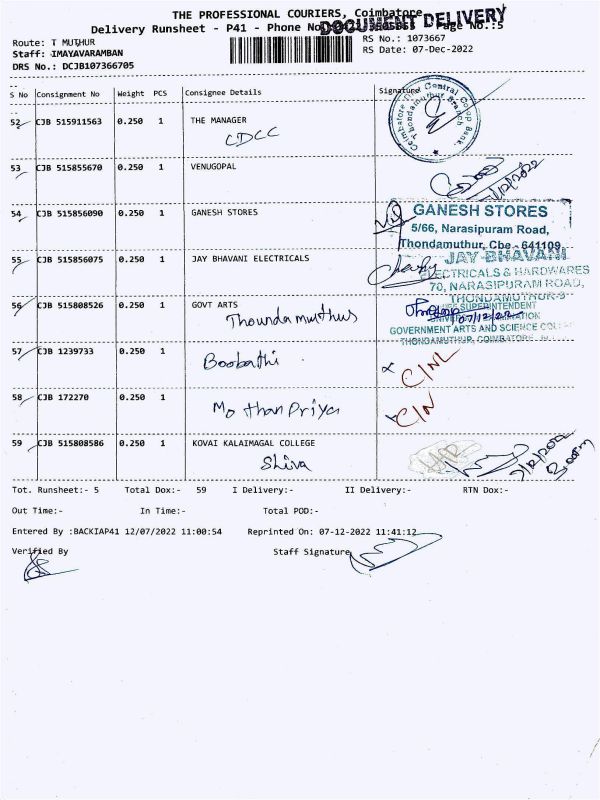 THE PROFESSIONAL COURIERS, Coimbatore
DOCUMENT DELIVERY
Delivery Runsheet - P41 - Phone No Page No.:5
Route: T MUTHUR
RS No.: 1073667
Staff: IMAYAVARAMBAN
RS Date: 07-Dec-2022
DRS No.: DCJB107366705
S No Consignment No Weight PCS Consignee Details Signature
52 CJB 515911563 0.250 1 THE MANAGER
CDCC
Coimbatore Dist Central Coop Bank
Thondamuthur Branch
53 CJB 515855670 0.250 1 VENUGOPAL
54 CJB 515856090 0.250 1 GANESH STORES
GANESH STORES
5/66, Narasipuram Road,
Thondamuthur, Cbe - 641109
55 CJB 515856075 0.250 1 JAY BHAVANI ELECTRICALS
JAY BHAVANI
ELECTRICALS & HARDWARES
70, NARASIPURAM ROAD,
THONDAMUTHUR
56 CJB 515808526 0.250 1 GOVT ARTS
Thoundamuthus
SUPERINTENDENT
07/12/22
GOVERNMENT ARTS AND SCIENCE
THONDAMUTHUR, COIMBATORE
57 CJB 1239733 0.250 1
Boobathi
C/NL
58 CJB 172270 0.250 1
Mo than Priya
C/N
59 CJB 515808586 0.250 1 KOVAI KALAIMAGAL COLLEGE
Shiva
Tot. Runsheet:- 5 Total Dox:- 59 I Delivery:- II Delivery:- RTN Dox:-
Out Time:- In Time:- Total POD:-
Entered By :BACKIAP41 12/07/2022 11:00:54 Reprinted On: 07-12-2022 11:41:12
Verified By Staff Signature